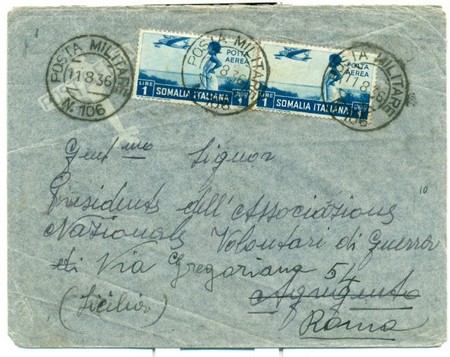 POSTA MILITARE
11.8.36
N. 106
POSTA AEREA
LIRE 1 SOMALIA ITALIANA 1
POSTA MILITARE
8.36
106
POSTA AEREA
1 SOMALIA ITALIANA 1 LIRE
POSTA MILITARE
11.8.36
106
Gent.mo Signor
Presidente dell'Associazione
Nazionale Volontari di Guerra
di Via Gregoriana 54
(Sicilia) Agrigento
Roma
10